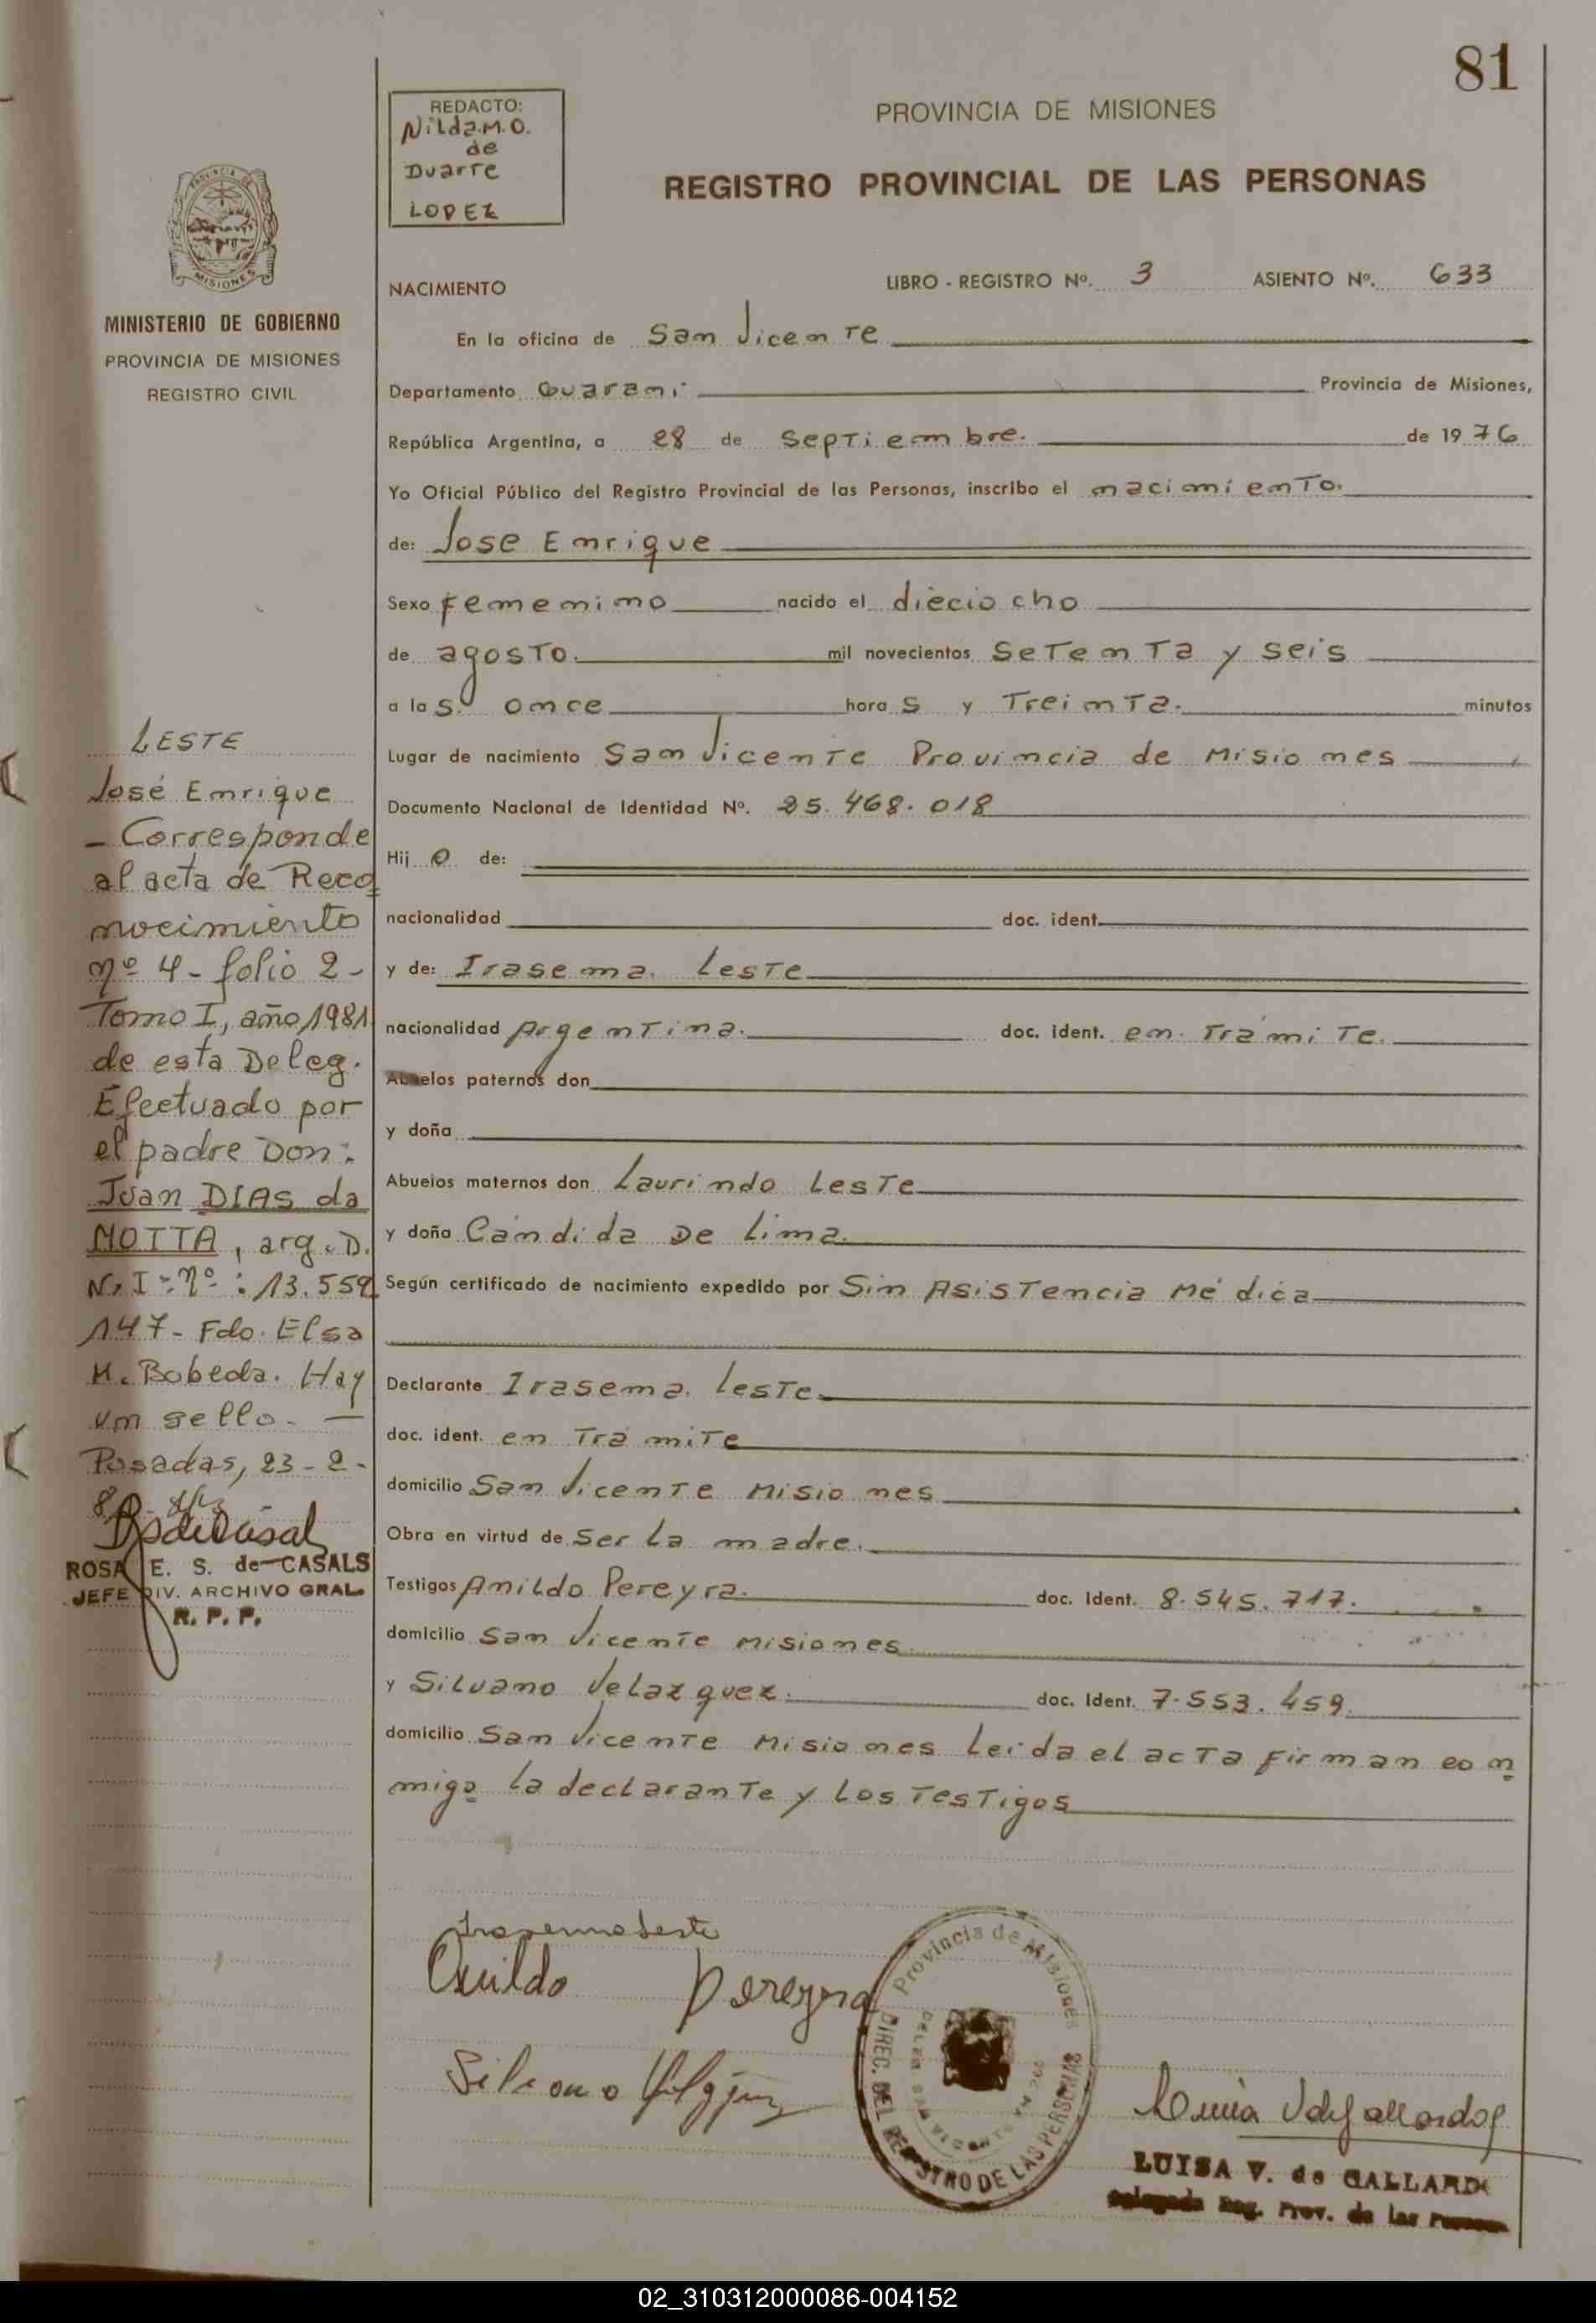 81
REDACTO:
Nilda.M.O.
de
Duarte
LOPEZ
PROVINCIA DE MISIONES
REGISTRO PROVINCIAL DE LAS PERSONAS
PROVINCIA DE
MISIONES
MINISTERIO DE GOBIERNO
PROVINCIA DE MISIONES
REGISTRO CIVIL
NACIMIENTO
LIBRO - REGISTRO Nº. 3 ASIENTO Nº. 633
En la oficina de San Vicente
Departamento Guarani Provincia de Misiones,
República Argentina, a 28 de Septiembre. de 1976
Yo Oficial Público del Registro Provincial de las Personas, inscribo el nacimiento.
de: Jose Enrique
Sexo femenino nacido el dieciocho
de agosto. mil novecientos Setenta y seis
a las. once horas y Treinta. minutos
Lugar de nacimiento San Vicente Provincia de Misiones
Documento Nacional de Identidad Nº. 25.468.018
Hijo de:
nacionalidad doc. ident.
y de: Irasema. Leste
nacionalidad Argentina. doc. ident. en Trámite.
Abuelos paternos don
y doña
Abuelos maternos don Laurindo Leste
y doña Cándida De Lima.
Según certificado de nacimiento expedido por Sin Asistencia Médica
Declarante Irasema. Leste
doc. ident. en Trámite
domicilio San Vicente Misiones
Obra en virtud de Ser la madre.
Testigos Anildo Pereyra. doc. Ident. 8.545.717.
domicilio San Vicente Misiones.
y Silvano Velazquez. doc. Ident. 7.553.459.
domicilio San Vicente Misiones Leida el acta firman con
migo la declarante y los Testigos
LESTE
José Enrique
- Corresponde
al acta de Reco
nocimiento
nº 4 - folio 2 -
Tomo I, año 1981
de esta Deleg.
Efectuado por
el padre Don:
Juan DIAS da
MOTTA, arg. D.
N. I - nº : 13.559
147 - Fdo. Elsa
M. Bobeda. Hay
un sello. -
Posadas, 23 - 2 -
ROSA E. S. de CASALS
JEFE DIV. ARCHIVO GRAL.
R. P. P.
Irasema Leste
Anildo Pereyra
Silvano
Provincia de Misiones
DIREC. DEL REGISTRO DE LAS PERSONAS
LUISA V. de GALLARDO
Delegada Reg. Prov. de las Personas
02_310312000086-004152